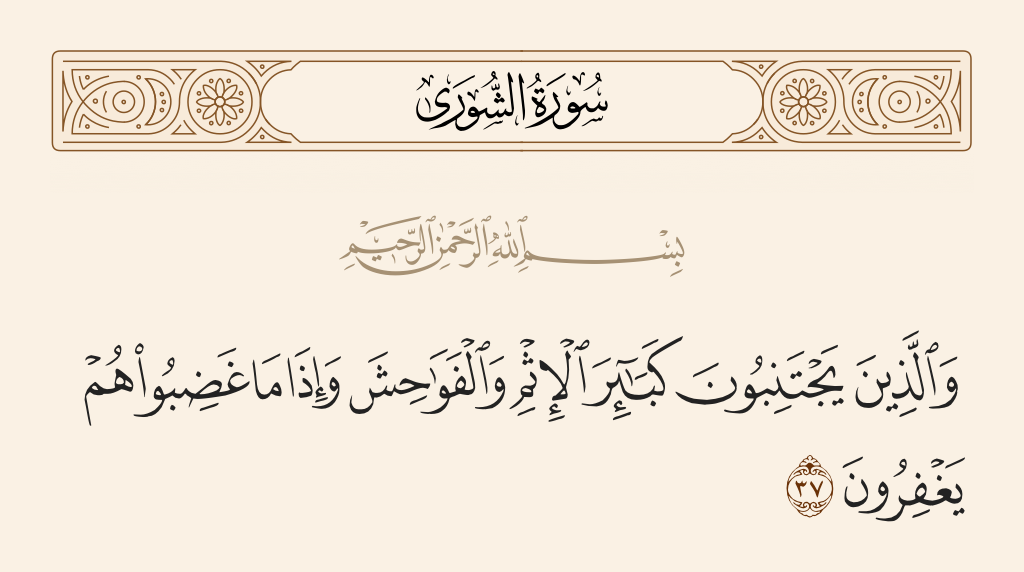 سُورَةُ الشُّورَى
بِسْمِ ٱللَّهِ ٱلرَّحْمَٰنِ ٱلرَّحِيمِ
وَٱلَّذِينَ يَجْتَنِبُونَ كَبَـٰٓئِرَ ٱلْإِثْمِ وَٱلْفَوَٰحِشَ وَإِذَا مَا غَضِبُوا۟ هُمْ
يَغْفِرُونَ ٣٧